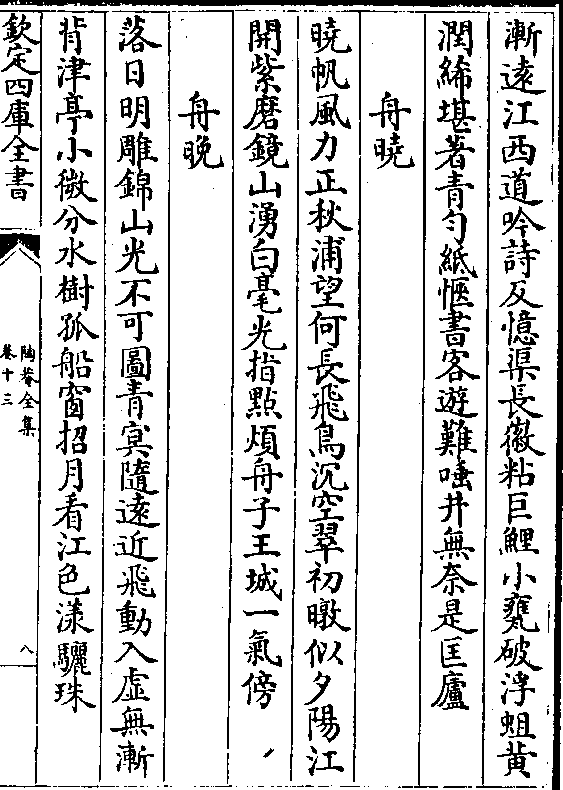 漸遠江西道吟詩反憶渠長徽粘巨鯉小甕破浮蛆黄
潤絺堪著青勻紙愜書客遊難唾井無奈是匡廬
舟曉
曉帆風力正秋浦望何長飛鳥沉空翠初暾似夕陽江
開紫磨鏡山湧白毫光指點煩舟子王城一氣傍
舟晚
落日明雕錦山光不可圖青冥隨遠近飛動入虛無漸
背津亭小微分水樹孤船窗招月看江色漾驪珠
欽定四庫全書
陶菴全集
卷十三
八